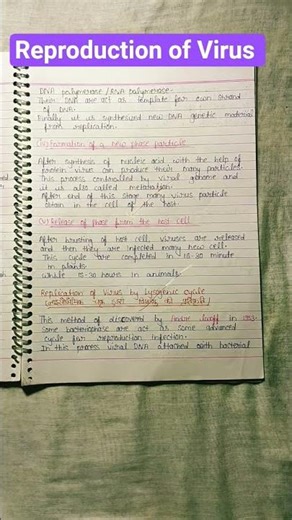 Reproduction of Virus
DNA polymerase / RNA polymerase.
Their DNA are act as template for own strand
of DNA.
Finally it is synthesized new DNA genetic material
from replication.
Formation of a new phase particle
After synthesis of nucleic acid with the help of
protein virus can produce their many particles.
This process controlled by viral genome and
it is also called maturation.
After end of this stage many virus particle
attain in the cell of the host
(v) Release of phase from the host cell
After brusting of host cell, viruses are released
and then they are infected many new cell.
This cycle are completed in 15-30 minute
in plants
while 15-30 hours in animals
Replication of virus by lysogenic cycle
This method of discovered by in
Some bacteriophase are act as some advanced
cycle for reproduction infection.
In this process viral DNA attached with bacterial